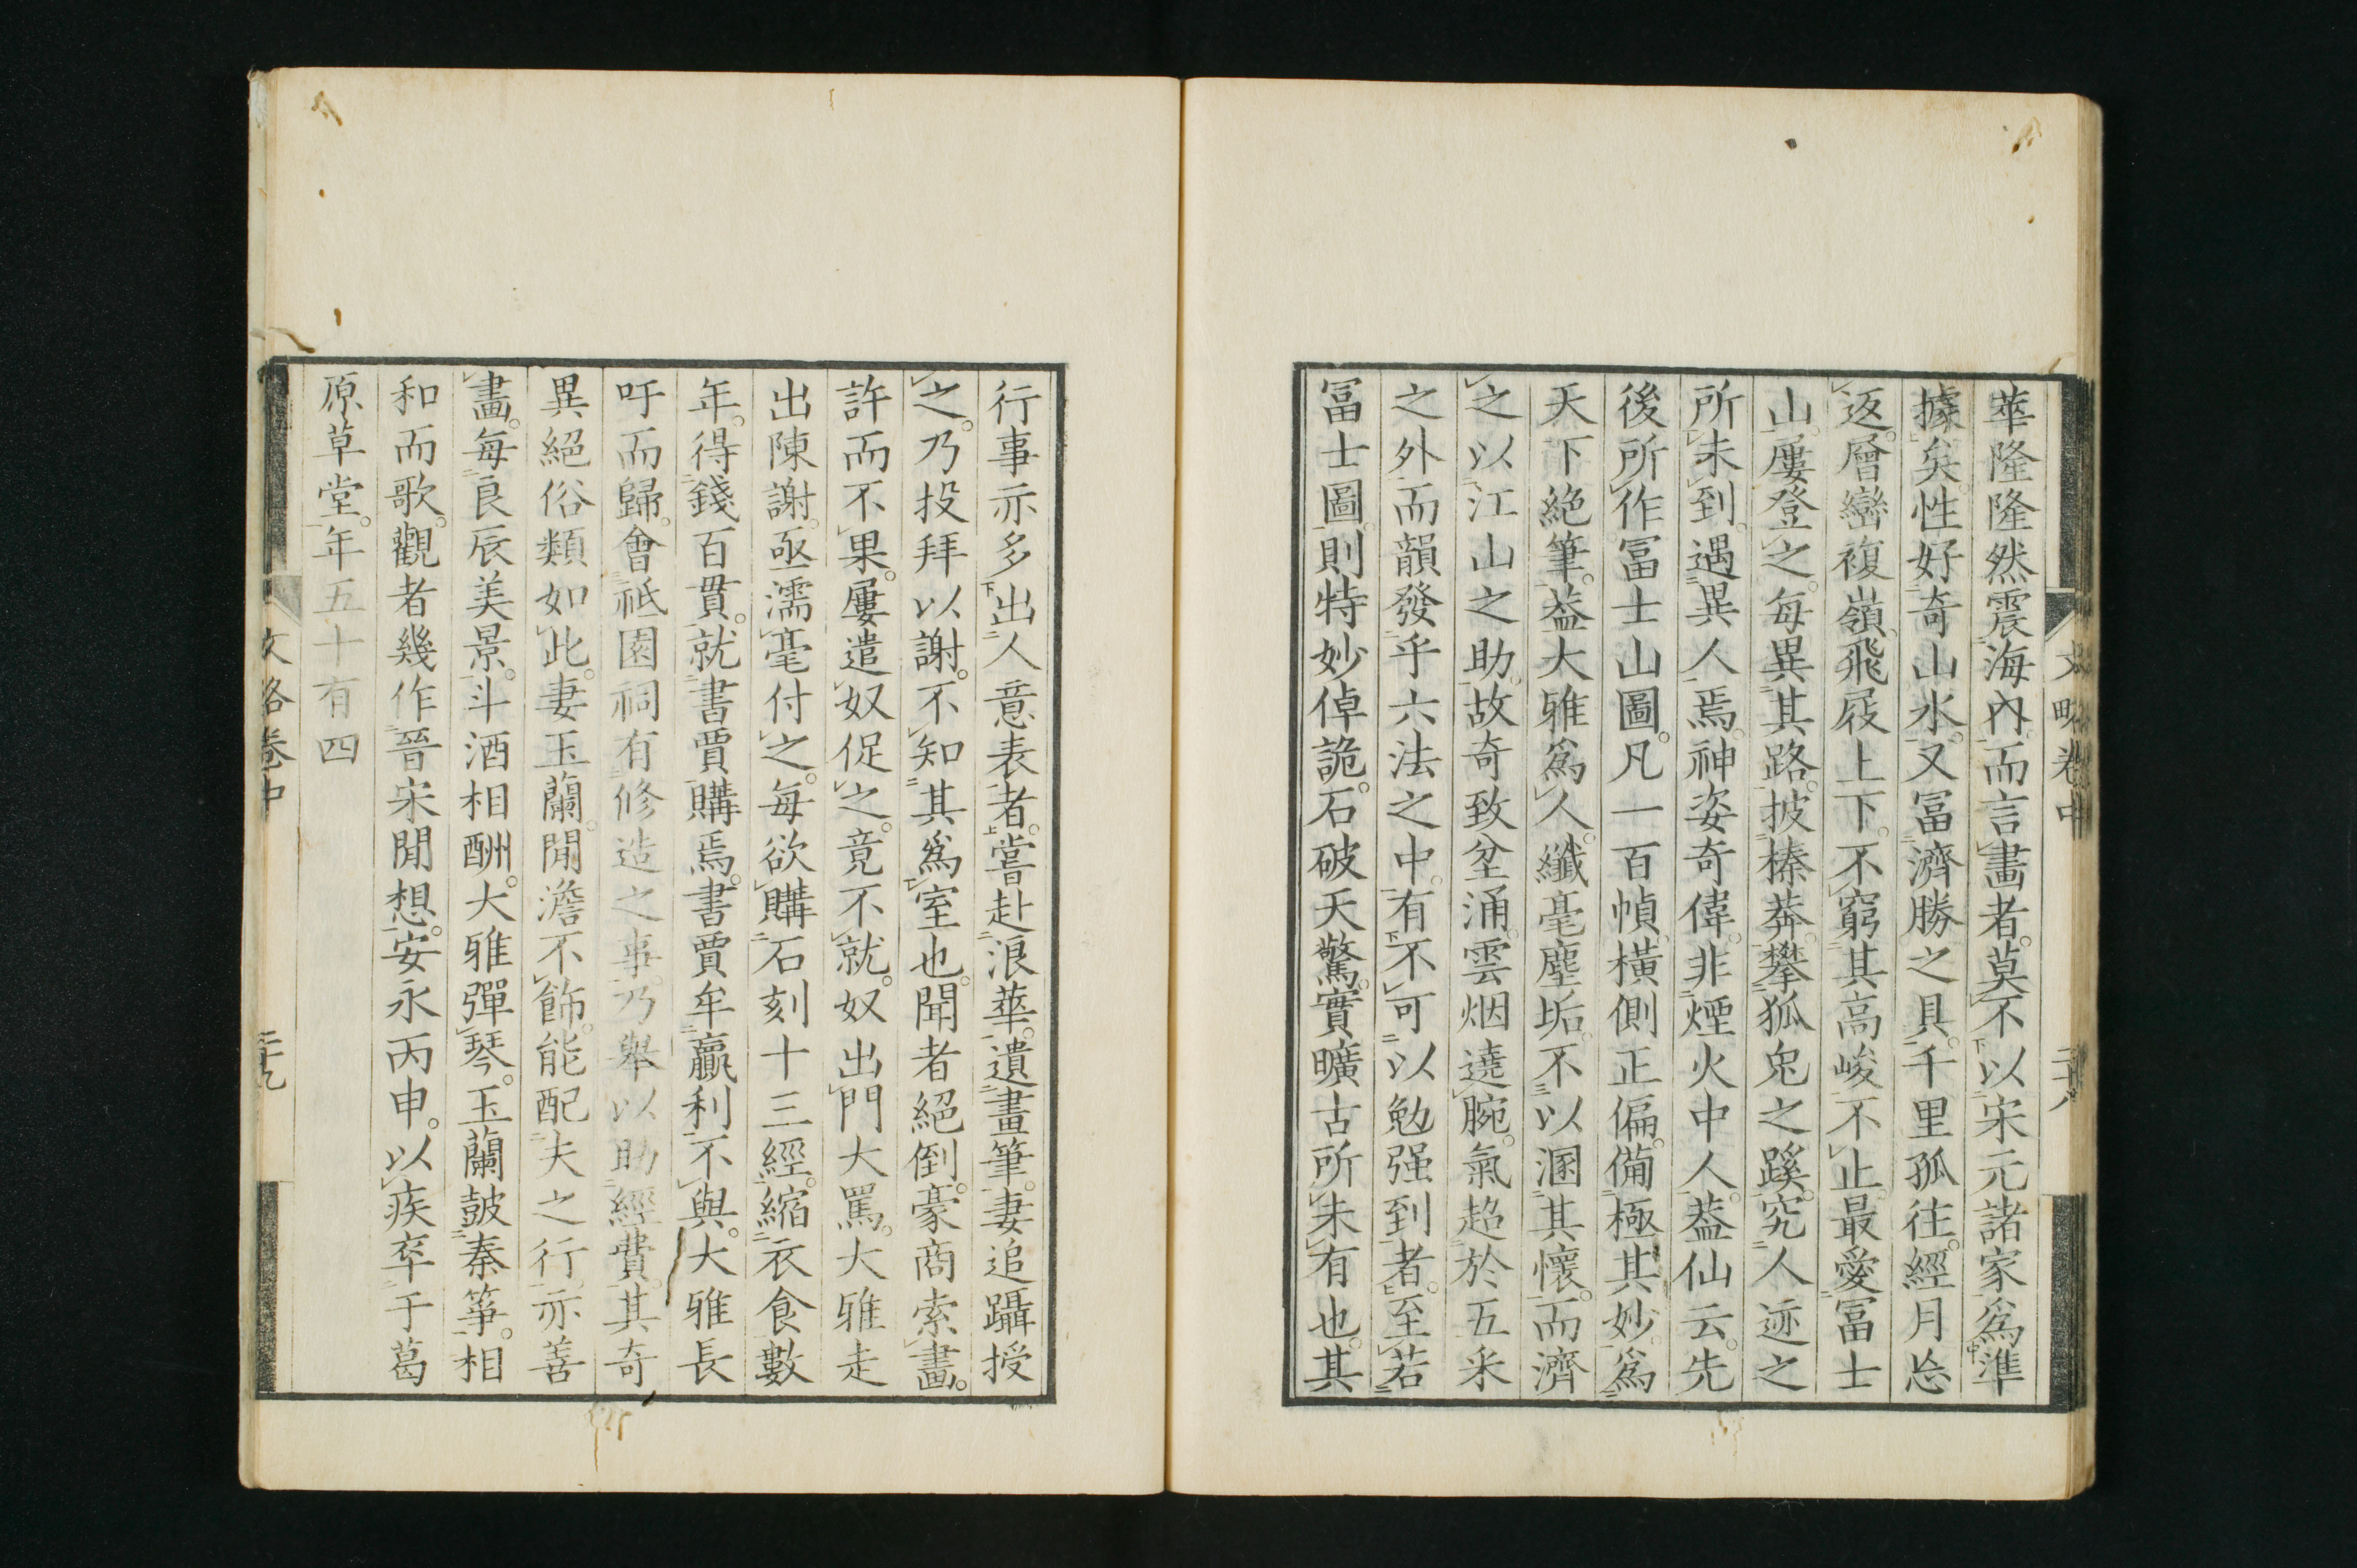 文略卷中
二十八
華隆隆然震海內而言畫者。莫不以宋元諸家爲準
據矣。性好奇山水。又冨濟勝之具。千里孤往。經月忘
返。層巒複嶺。飛屐上下。不窮其高峻不止最愛冨士
山。屢登之。每異其路。披榛莽。攀狐兔之蹊。究人迹之
所未到。遇異人焉。神姿奇偉。非煙火中人。葢仙云。先
後所作冨士山圖。凡一百幀。橫側正偏。備極其妙。爲
天下絕筆。葢大雅爲人。纖毫塵垢。不以溷其懷。而濟
之以江山之助。故奇致坌涌。雲烟遶腕。氣超於五采
之外而韻發乎六法之中。有不可以勉强到者。至若
冨士圖。則特妙倬詭。石破天驚。實曠古所未有也。其
行事亦多出人意表者。嘗赴浪華。遺畫筆。妻追躡授
之。乃投拜以謝。不知其爲室也。聞者絕倒。豪商索畫。
許而不果。屢遣奴促之。竟不就。奴出門大罵。大雅走
出陳謝。亟濡毫付之。每欲購石刻十三經。縮衣食數
年。得錢百貫。就書賈購焉。書賈牟贏利不與。大雅長
吁而歸。會祗園祠有修造之事。乃擧以助經費。其奇
異絕俗類如此。妻玉蘭。閒澹不飾。能配夫之行。亦善
畫。每良辰美景。斗酒相酬。大雅彈琴。玉蘭皷秦箏。相
和而歌。觀者幾作晉宋閒想。安永丙申。以疾卒于葛
原草堂。年五十有四
文略卷中
二十九